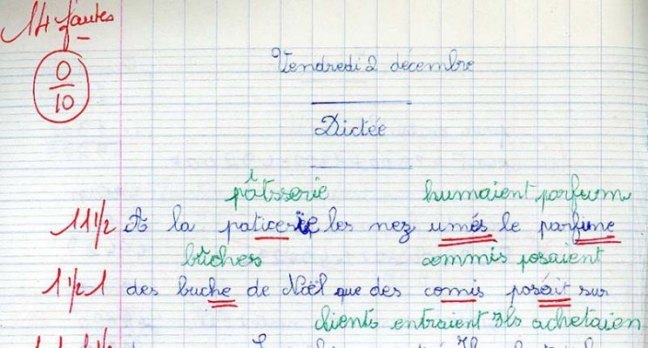 14 fautes
0
10
Vendredi 2 décembre
Dictée
pâtisserie humaient parfum
1 1 1/2 A la paticerie les nez umés le parfune
bûches commis posaient
1 1/2 1 des buche de Noël que des comis poséit sur
clients entraient Ils achetaien